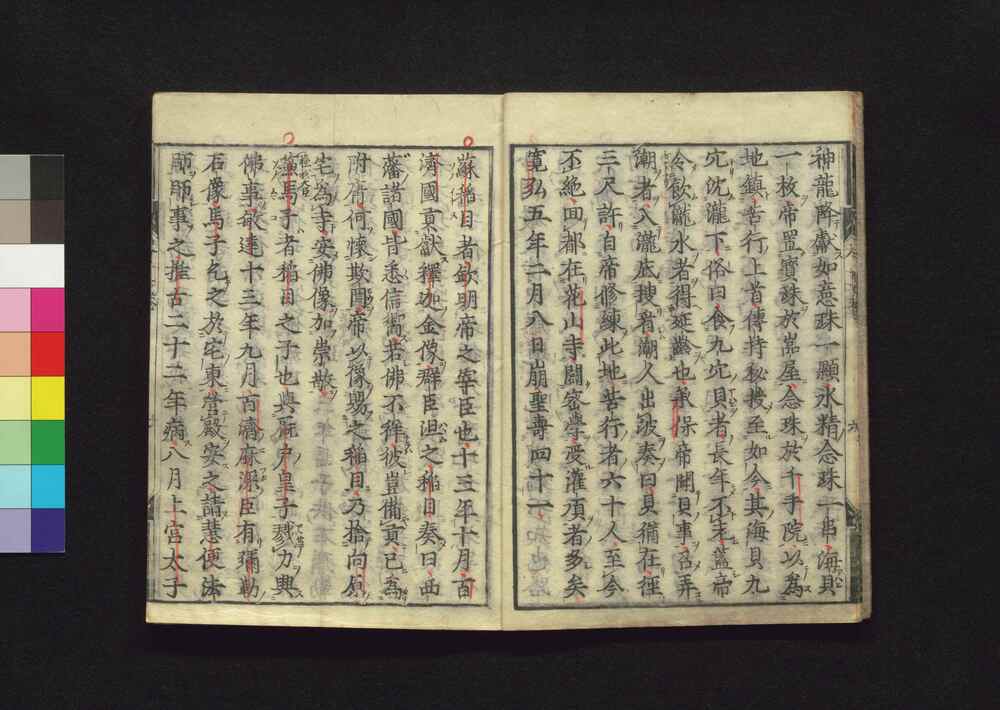 神龍降獻如意珠一顆水精念珠一串海貝
一枚帝置寶珠於嵓屋念珠於千手院以為
地鎮苦行上首傳持秘授至如今其海貝九
宂沈瀧下俗曰食九宂貝者長年不老蓋帝
令飲瀧水者得延齡也承保帝聞貝事召弄
潮者入瀧底搜看潮人出波奏曰貝猶在徑
三尺許自帝修練此地苦行者六十人至今
不絶回都在花山寺鬪密學受灌頂者多矣
寛弘五年二月八日崩聖壽四十一
蘇稻目者欽明帝之宰臣也十三年十月百
濟國貢獻釋迦金像群臣沮之稻目奏曰西
蕃諸國皆悉信嚮若佛不祥彼豈備貢已為
附庸何懷欺罔帝以像賜之稻目乃捨向原
宅為寺安佛像加崇敬
蘇馬子者稻目之子也與厩戸皇子戮力興
佛事敏達十三年九月百濟麻深臣有彌勒
石像馬子乞之於宅東營殿安之請慧便法
師師事之推古二十二年病八月上宮太子